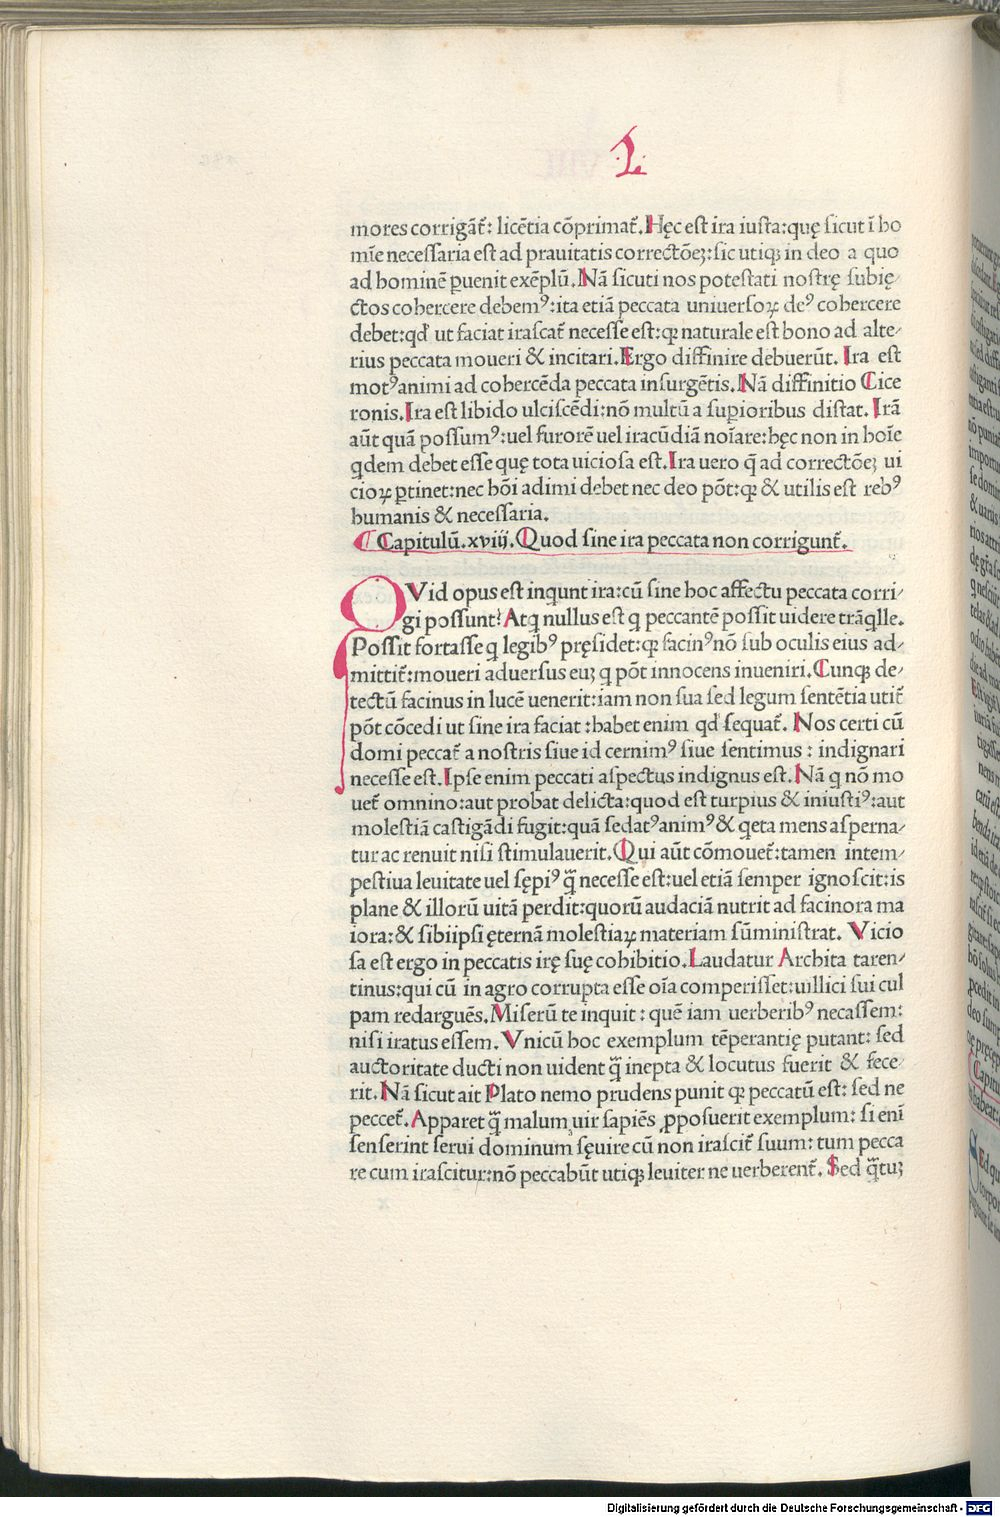 .L.
mores corrigãt᷑: licẽtia cõprimat᷑. Hęc est ira iusta: quę sicut ĩ ho
mĩe necessaria est ad prauitatis correctõeꝫ: sic utiqꝫ in deo a quo
ad hominẽ ꝑuenit exẽplũ. Nã sicuti nos potestati nostrę subię⸗
ctos cohercere debemꝰ: ita etiã peccata uniuersoꝝ deꝰ cohercere
debet: qd᷑ ut faciat irascat᷑ necesse est: qꝫ naturale est bono ad alte⸗
rius peccata moueri & incitari. Ergo diffinire debuerũt. Ira est
motꝰ animi ad cohercẽda peccata insurgẽtis. Nã diffinitio Cice
ronis. Ira est libido ulciscẽdi: nõ multũ a suꝑioribus distat. Irã
aũt quã possumꝰ: uel furorẽ uel iracũdiã noĩare: hęc non in hoĩe
q̃dem debet esse quę tota uiciosa est. Ira uero q̃ ad correctõeꝫ ui
cioꝝ ꝑtinet: nec hõi adimi debet nec deo põt: qꝫ & utilis est rebꝰ
humanis & necessaria.
Capitulũ. xviij. Quod sine ira peccata non corrigunt᷑.
QVid opus est inqunt ira: cũ sine hoc affectu peccata corri⸗
gi possunt? Atq nullus est q peccantẽ possit uidere trãqlle.
Possit fortasse q legibꝰ pręsidet: qꝫ facinꝰ nõ sub oculis eius ad⸗
mittit᷑: moueri aduersus euꝫ q põt innocens inueniri. Cunqꝫ de⸗
tectũ facinus in lucẽ uenerit: iam non sua sed legum sentẽtia utit᷑
põt cõcedi ut sine ira faciat: habet enim qd᷑ sequat᷑. Nos certi cũ
domi peccat᷑ a nostris siue id cernimꝰ siue sentimus: indignari
necesse est. Ipse enim peccati aspectus indignus est. Nã q nõ mo
uet᷑ omnino: aut probat delicta: quod est turpius & iniustiꝰ: aut
molestiã castigãdi fugit: quã sedatꝰ animꝰ & qeta mens asperna⸗
tur ac renuit nisi stimulauerit. Qui aũt cõmouet᷑: tamen intem⸗
pestiua leuitate uel sępiꝰ q̃ necesse est: uel etiã semper ignoscit: is
plane & illorũ uitã perdit: quorũ audaciã nutrit ad facinora ma
iora: & sibiipsi ęternã molestiaꝝ materiam sũministrat. Vicio
sa est ergo in peccatis irę suę cohibitio. Laudatur Archita taren⸗
tinus: qui cũ in agro corrupta esse oĩa comperisset: uillici sui cul
pam redarguẽs. Miserũ te inquit: quẽ iam uerberibꝰ necassem:
nisi iratus essem. Vnicũ hoc exemplum tẽperantię putant: sed
auctoritate ducti non uident q̃ inepta & locutus fuerit & fece⸗
rit. Nã sicut ait Plato nemo prudens punit qꝫ peccatũ est: sed ne
peccet᷑. Apparet q̃ malum uir sapiẽs ꝓposuerit exemplum: si enĩ
senserint serui dominum sęuire cũ non irascit᷑ suum: tum pecca
re cum irascitur: nõ peccabũt utiqꝫ leuiter ne uerberent᷑. Sed q̃tuꝫ
Digitalisierung gefördert durch die Deutsche Forschungsgemeinschaft - DFG